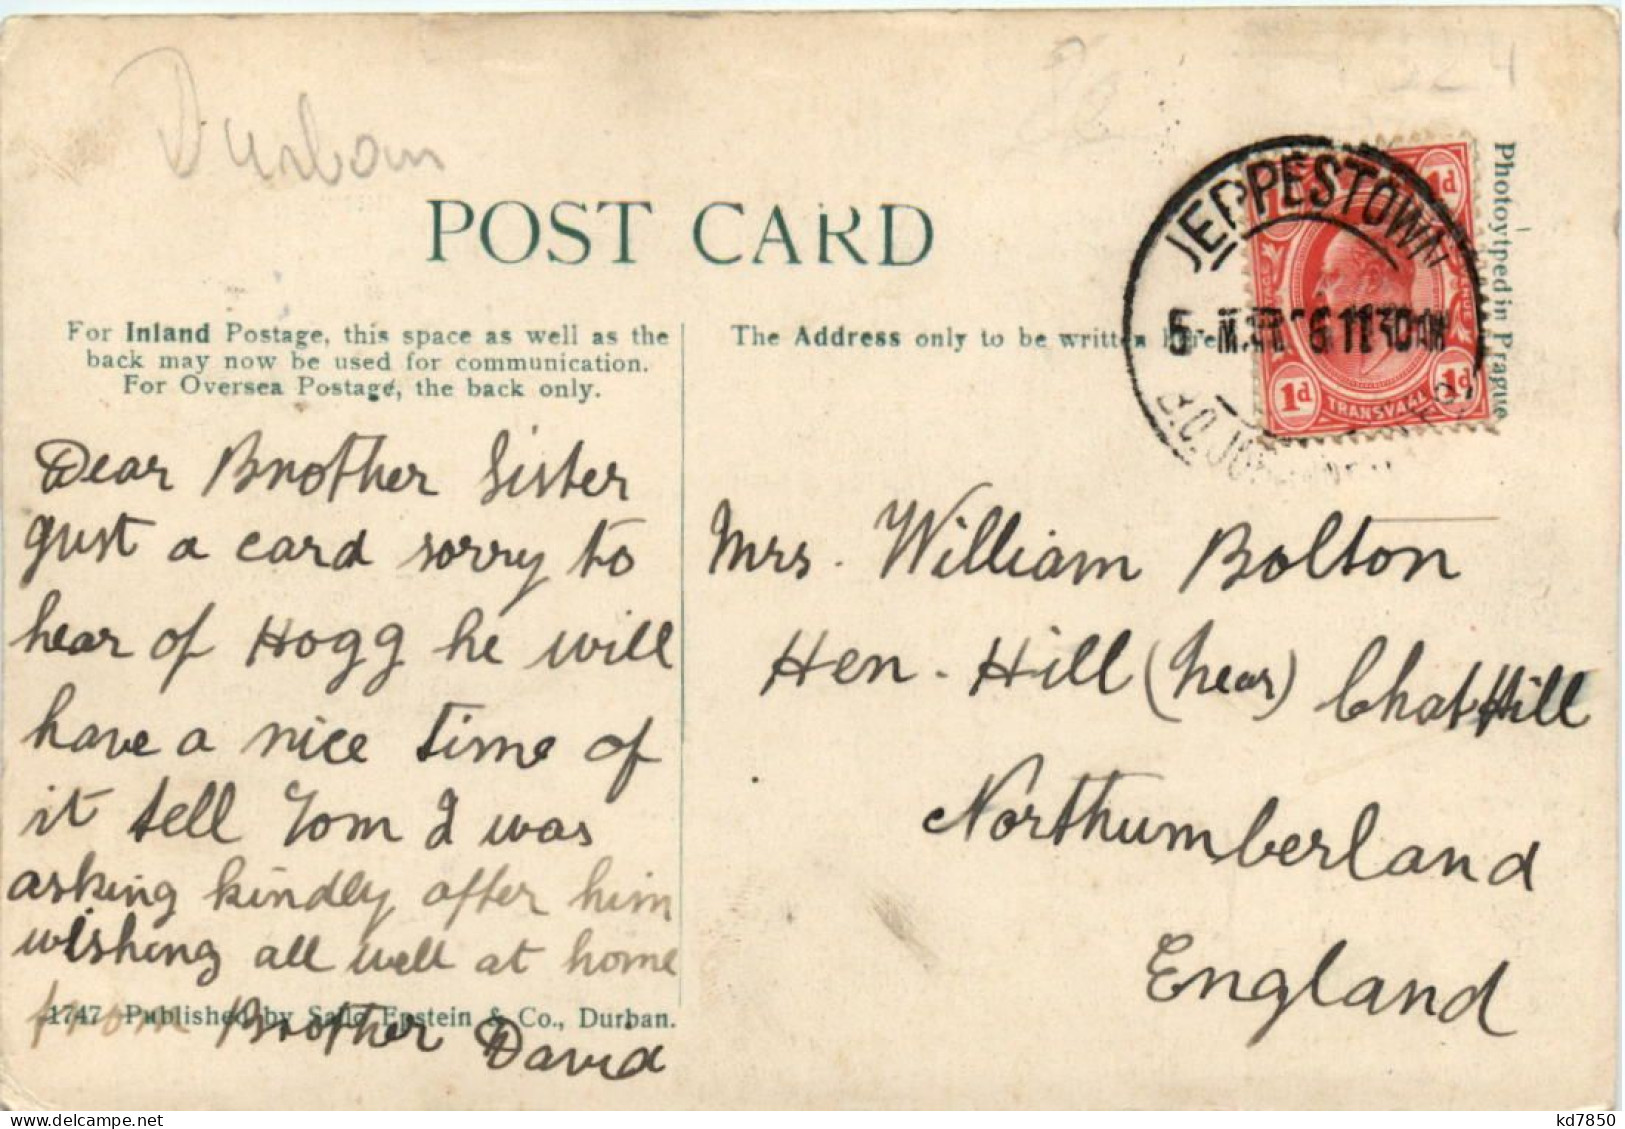 Durban
POST CARD
For Inland Postage, this space as well as the
back may now be used for communication.
For Oversea Postage, the back only.
The Address only to be written here
JEPPESTOWN
5 MAR 06 11 30AM
1d
1d 1d
TRANSVAAL
Photoytped in Prague
Dear Brother Sister
gust a card sorry to
hear of Hogg he will
have a nice time of
it tell Tom I was
asking kindly after him
wishing all well at home
from Brother David
1747 Published by Sallo Epstein & Co., Durban.
Mrs. William Bolton
Hen. Hill (near) Chat Hill
Northumberland
England
delcampe.net
kd7850